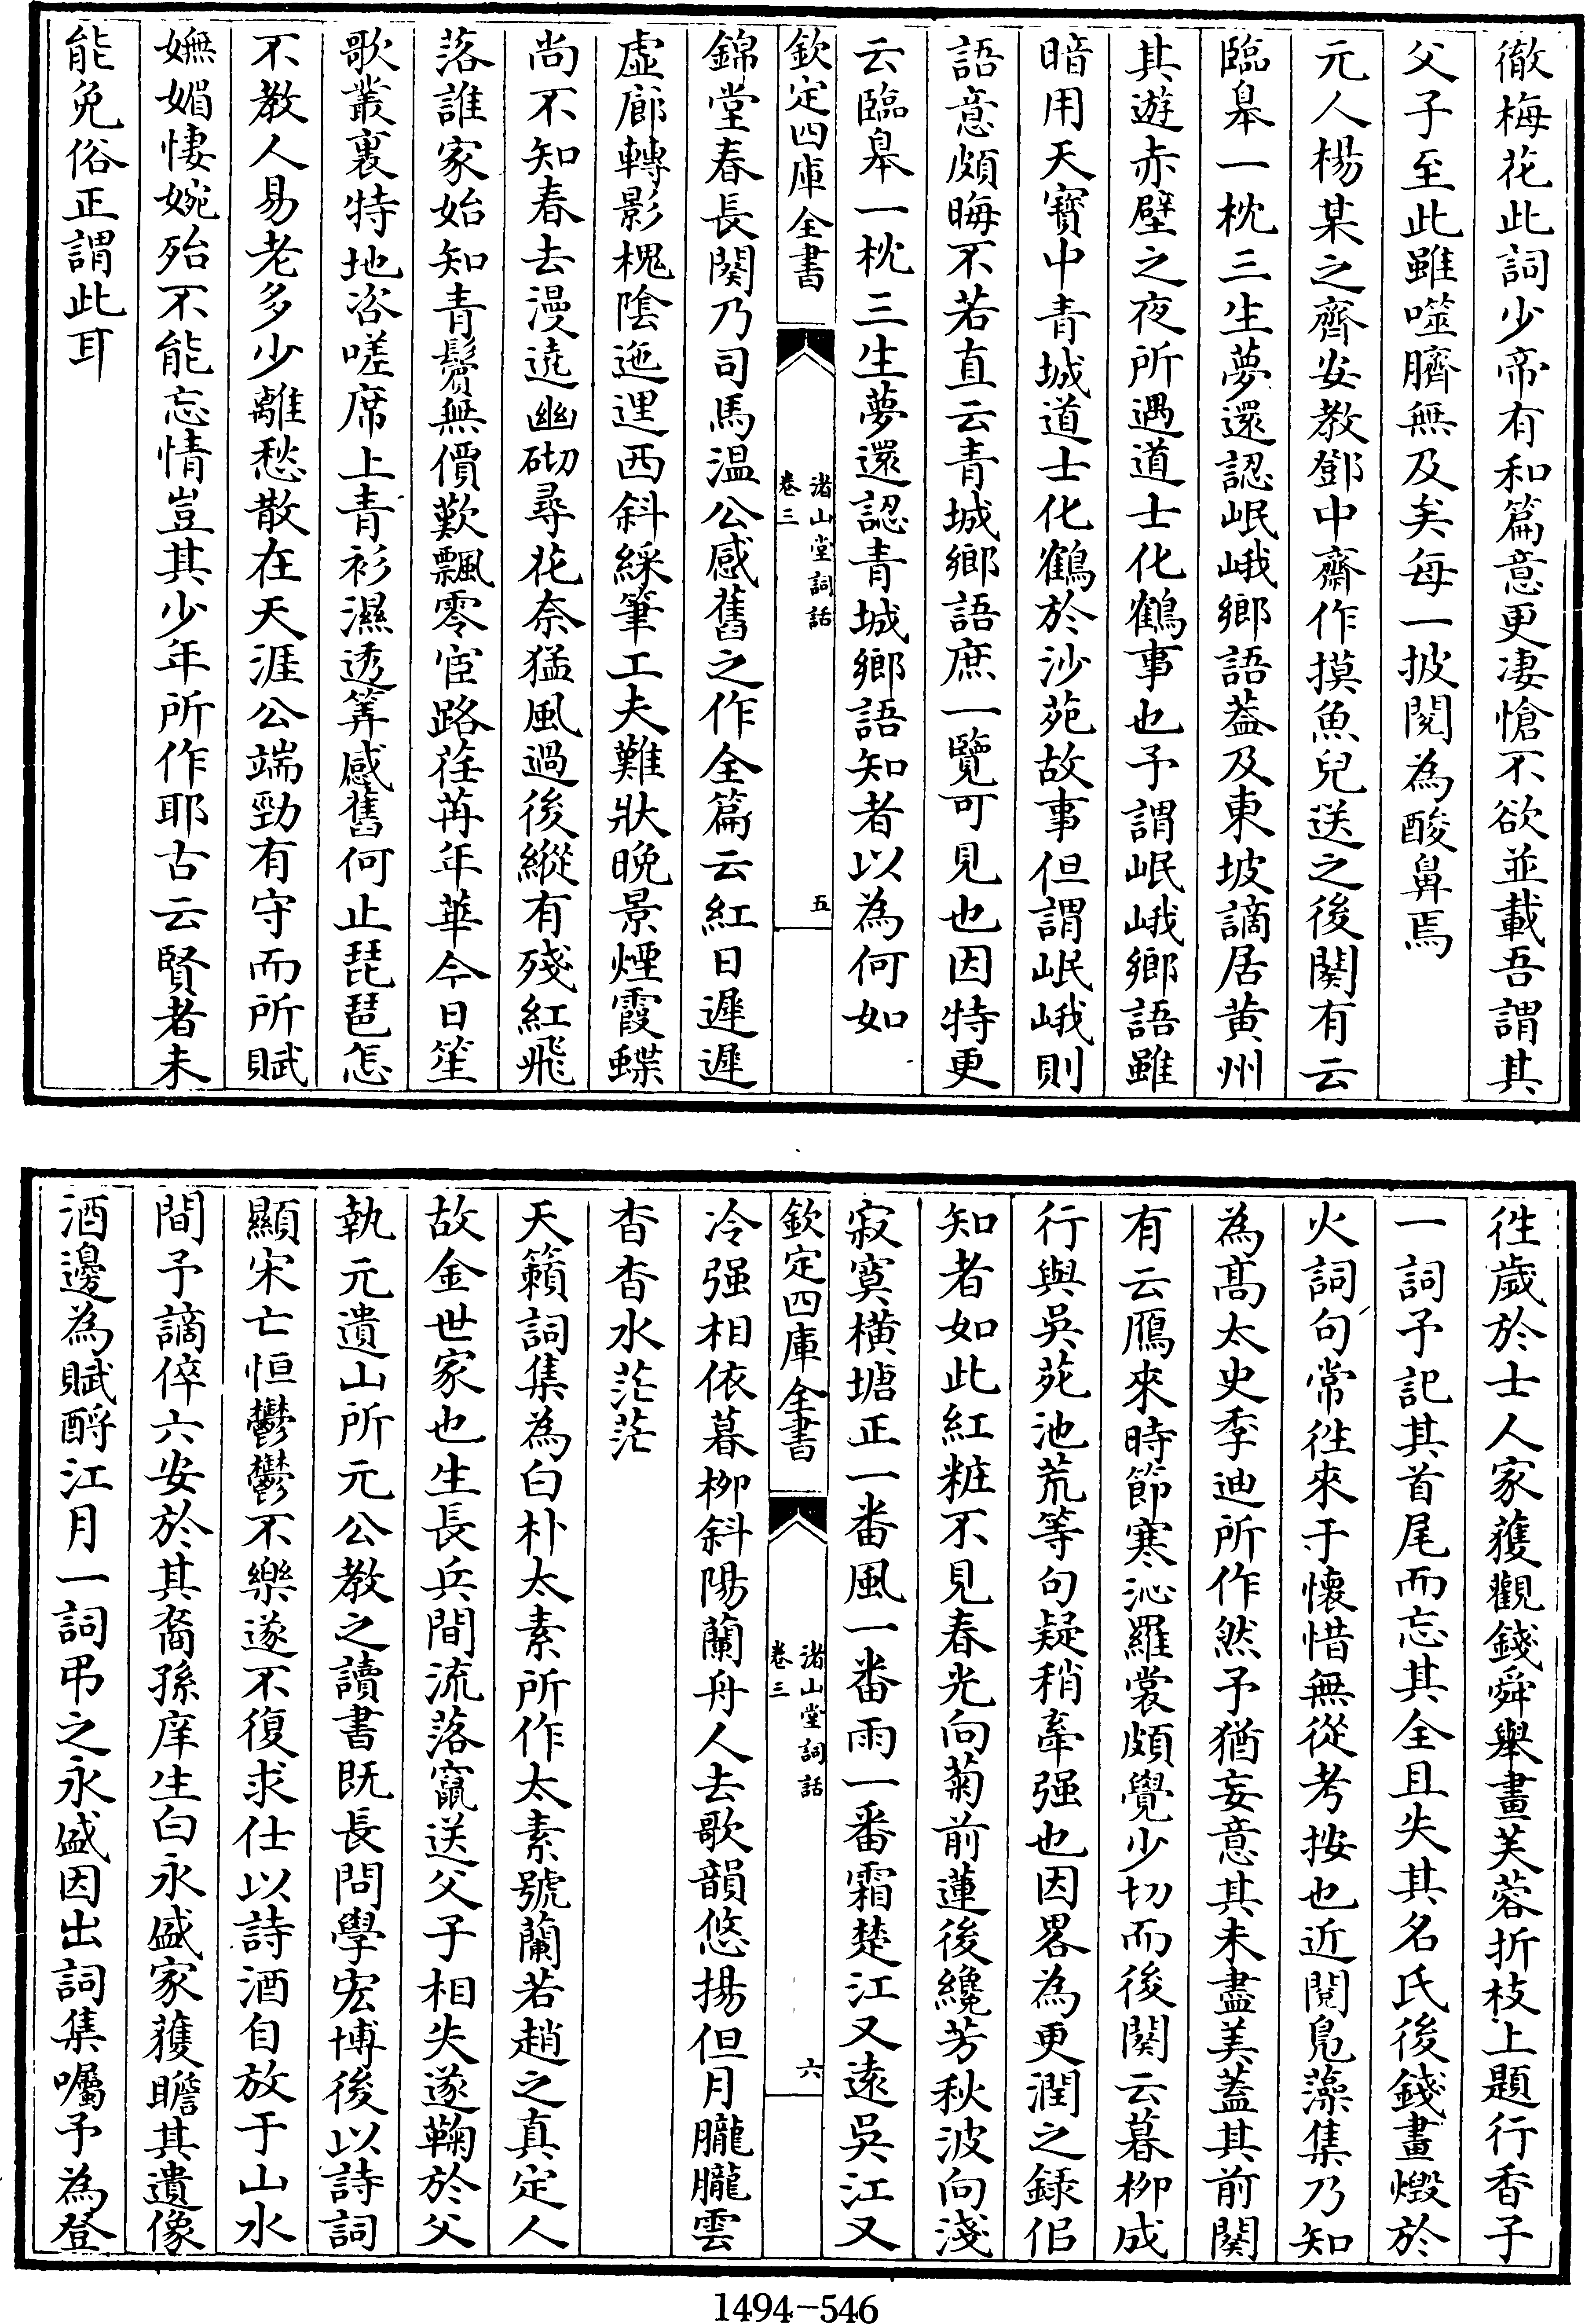 徹梅花此詞少帝有和篇意更凄愴不欲並載吾謂其
父子至此雖噬臍無及矣每一披閱為酸鼻焉
元人楊某之齊安教鄧中齋作摸魚兒送之後闋有云
臨皋一枕三生夢還認岷峨鄉語葢及東坡謫居黄州
其遊赤壁之夜所遇道士化鶴事也予謂岷峨鄉語雖
暗用天寶中青城道士化鶴於沙苑故事但謂岷峨則
語意頗晦不若直云青城鄉語庶一覽可見也因特更
云臨皋一枕三生夢還認青城鄉語知者以為何如
欽定四庫全書
渚山堂詞話
卷三
五
錦堂春長闋乃司馬温公感舊之作全篇云紅日遲遲
虚廊轉影槐陰迤逗西斜綵筆工夫難狀晚景煙霞蝶
尚不知春去漫遶幽砌尋花奈猛風過後縱有殘紅飛
落誰家始知青鬢無價歎飄零宦路荏苒年華今日笙
歌叢裏特地咨嗟席上青衫濕透筭感舊何止琵琶怎
不教人易老多少離愁散在天涯公端勁有守而所賦
嫵媚悽婉殆不能忘情豈其少年所作耶古云賢者未
能免俗正謂此耳
徃歲於士人家獲觀錢舜舉畫芙蓉折枝上題行香子
一詞予記其首尾而忘其全且失其名氏後錢畫燬於
火詞句常徃來于懐惜無從考按也近閱鳬藻集乃知
為髙太史季迪所作然予猶妄意其未盡美葢其前闋
有云鴈來時節寒沁羅裳頗覺少切而後闋云暮柳成
行與吳苑池荒等句疑稍牽强也因畧為更潤之録侣
知者如此紅粧不見春光向菊前蓮後纔芳秋波向淺
寂寞横塘正一番風一番雨一番霜楚江又逺吳江又
欽定四庫全書
渚山堂詞話
卷三
六
冷强相依暮栁斜陽蘭舟人去歌韻悠揚但月朧朧雲
杳杳水茫茫
天籟詞集為白朴太素所作太素號蘭若趙之真定人
故金世家也生長兵間流落竄送父子相失遂鞠於父
執元遺山所元公教之讀書既長問學宏博後以詩詞
顯宋亡恒鬱鬱不樂遂不復求仕以詩酒自放于山水
間予謫倅六安於其裔孫庠生白永盛家獲瞻其遺像
酒邊為賦酹江月一詞弔之永盛因出詞集囑予為登
1494-546